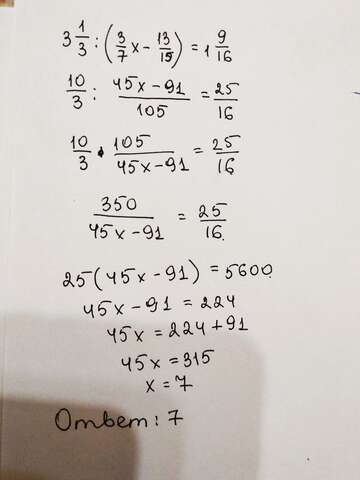 3 1/3 : (3/7 x - 13/15) = 1 9/16
10/3 : (45x - 91)/105 = 25/16
10/3 · 105/(45x - 91) = 25/16
350/(45x - 91) = 25/16
25(45x - 91) = 5600
45x - 91 = 224
45x = 224 + 91
45x = 315
x = 7
Ответ: 7